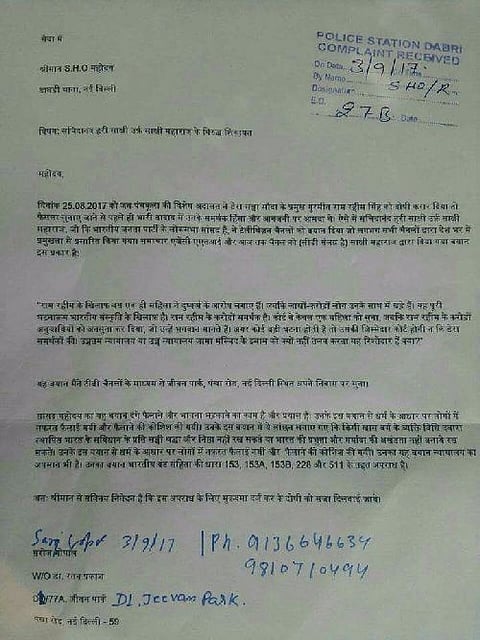 सेवा में
श्रीमान S.H.O महोदय
डाबड़ी थाना, नई दिल्ली
POLICE STATION DABRI
COMPLAINT RECEIVED
On Date 3/9/17
By Name SHO/R
Designation
27B Date
विषय: सच्चिदानंद हरी साक्षी उर्फ साक्षी महाराज के विरुद्ध शिकायत
महोदय,
दिनांक 25.08.2017 को जब पंचकूला की विशेष अदालत ने डेरा सच्चा सौदा के प्रमुख गुरमीत राम रहीम सिंह को दोषी करार दिया तो
फैसला सुनाए जाने से पहले ही भारी तादाद में उनके समर्थक हिंसा और आगजनी पर आमादा थे। ऐसे में सच्चिदानंद हरी साक्षी उर्फ साक्षी
महाराज, जो कि भारतीय जनता पार्टी के लोकसभा सांसद है, ने टेलीविज़न चैनलों को बयान दिया जो लगभग सभी चैनलों द्वारा देश भर में
प्रमुखता से प्रसारित किया गया। समाचार एजेंसी एएनआई और आज तक चैनल को (सीडी संलग्न है) साक्षी महाराज द्वारा दिया गया बयान
इस प्रकार है:
"राम रहीम के खिलाफ बस एक ही महिला ने दुष्कर्म के आरोप लगाए हैं। जबकि लाखों-करोड़ों लोग उनके साथ में खड़े हैं। यह पूरी
घटनाक्रम भारतीय संस्कृति के खिलाफ है। राम रहीम के करोड़ों समर्थक है। कोर्ट ने केवल एक महिला को सुना, जबकि राम रहीम के करोड़ों
अनुयायियों को अनसुना कर दिया, जो उन्हें भगवान मानते हैं। अगर कोई बड़ी घटना होती है तो उसकी जिम्मेदार कोर्ट होगी न कि डेरा
समर्थकों की। उच्चतम न्यायालय या उच्च न्यायालय जामा मस्जिद के इमाम को क्यों नहीं तलब करता वह रिश्तेदार हैं क्या?"
यह बयान मैंने टीवी चैनलों के माध्यम से जीवन पार्क, पंखा रोड, नई दिल्ली स्थित अपने निवास पर सुना।
सांसद महोदय का यह बयान दंगे फैलाने और भावना भड़काने का काम है और प्रयास है। उनके इस बयान से धर्म के आधार पर लोगों में
नफरत फैलाई गयी और फैलाने की कोशिश की गयी। उनके इस बयान से ये लांछन लगाए गए कि किसी खास वर्ग के व्यक्ति विधि द्वारा
स्थापित भारत के संविधान के प्रति सच्ची श्रद्धा और निष्ठा नहीं रख सकते या भारत की प्रभुता और मर्यादा की अखंडता नहीं बनाये रख
सकते। उनके इस बयान से धर्म के आधार पर लोगों में नफरत फैलाई गयी और फैलाने की कोशिश की गयी। उनका यह बयान न्यायालय का
अपमान भी है। उनका बयान भारतीय दंड संहिता की धारा 153, 153A, 153B, 228 और 511 के तहत अपराध है।
अतः श्रीमान से सविनय निवेदन है कि इस अपराध के लिए मुकदमा दर्ज कर के दोषी को सजा दिलवाई जाये।
3/9/17 | Ph. 9136646634
9810710494
सरोज गोपाल
W/O डा. रतन प्रकाश
/77A, जीवन पार्क D1, Jeevan Park.
पंखा रोड, नई दिल्ली - 59